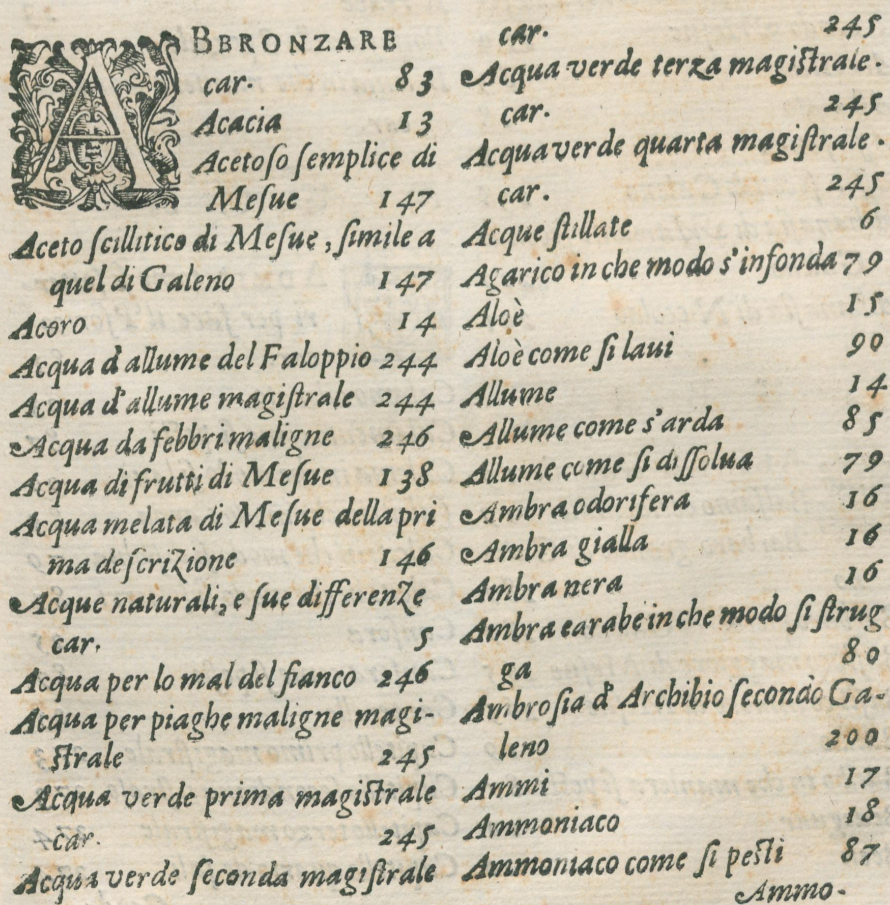 ABBRONZARE
car. 83
Acacia 13
Acetoſo ſemplice di
Meſue 147
Aceto ſcillitico di Meſue, ſimile a
quel di Galeno 147
Acoro 14
Acqua d'allume del Faloppio 244
Acqua d'allume magiſtrale 244
Acqua da febbri maligne 246
Acqua di frutti di Meſue 138
Acqua melata di Meſue della pri
ma deſcrizione 146
Acque naturali, e ſue differenze
car. 5
Acqua per lo mal del fianco 246
Acqua per piaghe maligne magi-
ſtrale 245
Acqua verde prima magiſtrale
car. 245
Acqua verde ſeconda magiſtrale
car. 245
Acqua verde terza magiſtrale.
car. 245
Acqua verde quarta magiſtrale.
car. 245
Acque ſtillate 6
Agarico in che modo s'infonda 79
Aloè 15
Aloè come ſi laui 90
Allume 14
Allume come s'arda 85
Allume come ſi diſſolua 79
Ambra odorifera 16
Ambra gialla 16
Ambra nera 16
Ambra e arabe in che modo ſi ſtrug
ga 80
Ambroſia d'Archibio ſecondo Ga-
leno 200
Ammi 17
Ammoniaco 18
Ammoniaco come ſi peſti 87
Ammo-